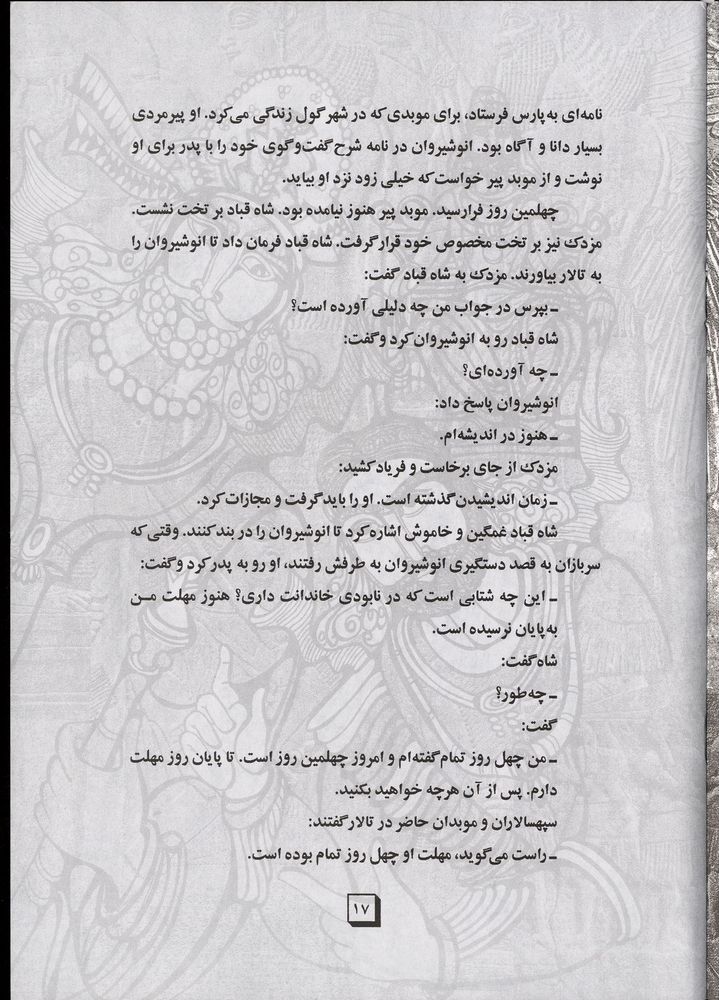 نامه‌ای به پارس فرستاد، برای موبدی که در شهر گول زندگی می‌کرد. او پیرمردی
بسیار دانا و آگاه بود. انوشیروان در نامه شرح گفت‌وگوی خود را با پدر برای او
نوشت و از موبد پیر خواست که خیلی زود نزد او بیاید.
چهلمین روز فرارسید. موبد پیر هنوز نیامده بود. شاه قباد بر تخت نشست.
مزدک نیز بر تخت مخصوص خود قرار گرفت. شاه قباد فرمان داد تا انوشیروان را
به تالار بیاورند. مزدک به شاه قباد گفت:
ـ بپرس در جواب من چه دلیلی آورده است؟
شاه قباد رو به انوشیروان کرد و گفت:
ـ چه آورده‌ای؟
انوشیروان پاسخ داد:
ـ هنوز در اندیشه‌ام.
مزدک از جای برخاست و فریاد کشید:
ـ زمان اندیشیدن گذشته است. او را باید گرفت و مجازات کرد.
شاه قباد غمگین و خاموش اشاره کرد تا انوشیروان را در بند کنند. وقتی که
سربازان به قصد دستگیری انوشیروان به طرفش رفتند، او رو به پدر کرد و گفت:
ـ این چه شتابی است که در نابودی خاندانت داری؟ هنوز مهلت مـن
به پایان نرسیده است.
شاه گفت:
ـ چه‌طور؟
گفت:
ـ من چهل روز تمام گفته‌ام و امروز چهلمین روز است. تا پایان روز مهلت
دارم. پس از آن هرچه خواهید بکنید.
سپهسالاران و موبدان حاضر در تالار گفتند:
ـ راست می‌گوید، مهلت او چهل روز تمام بوده است.
۱۷